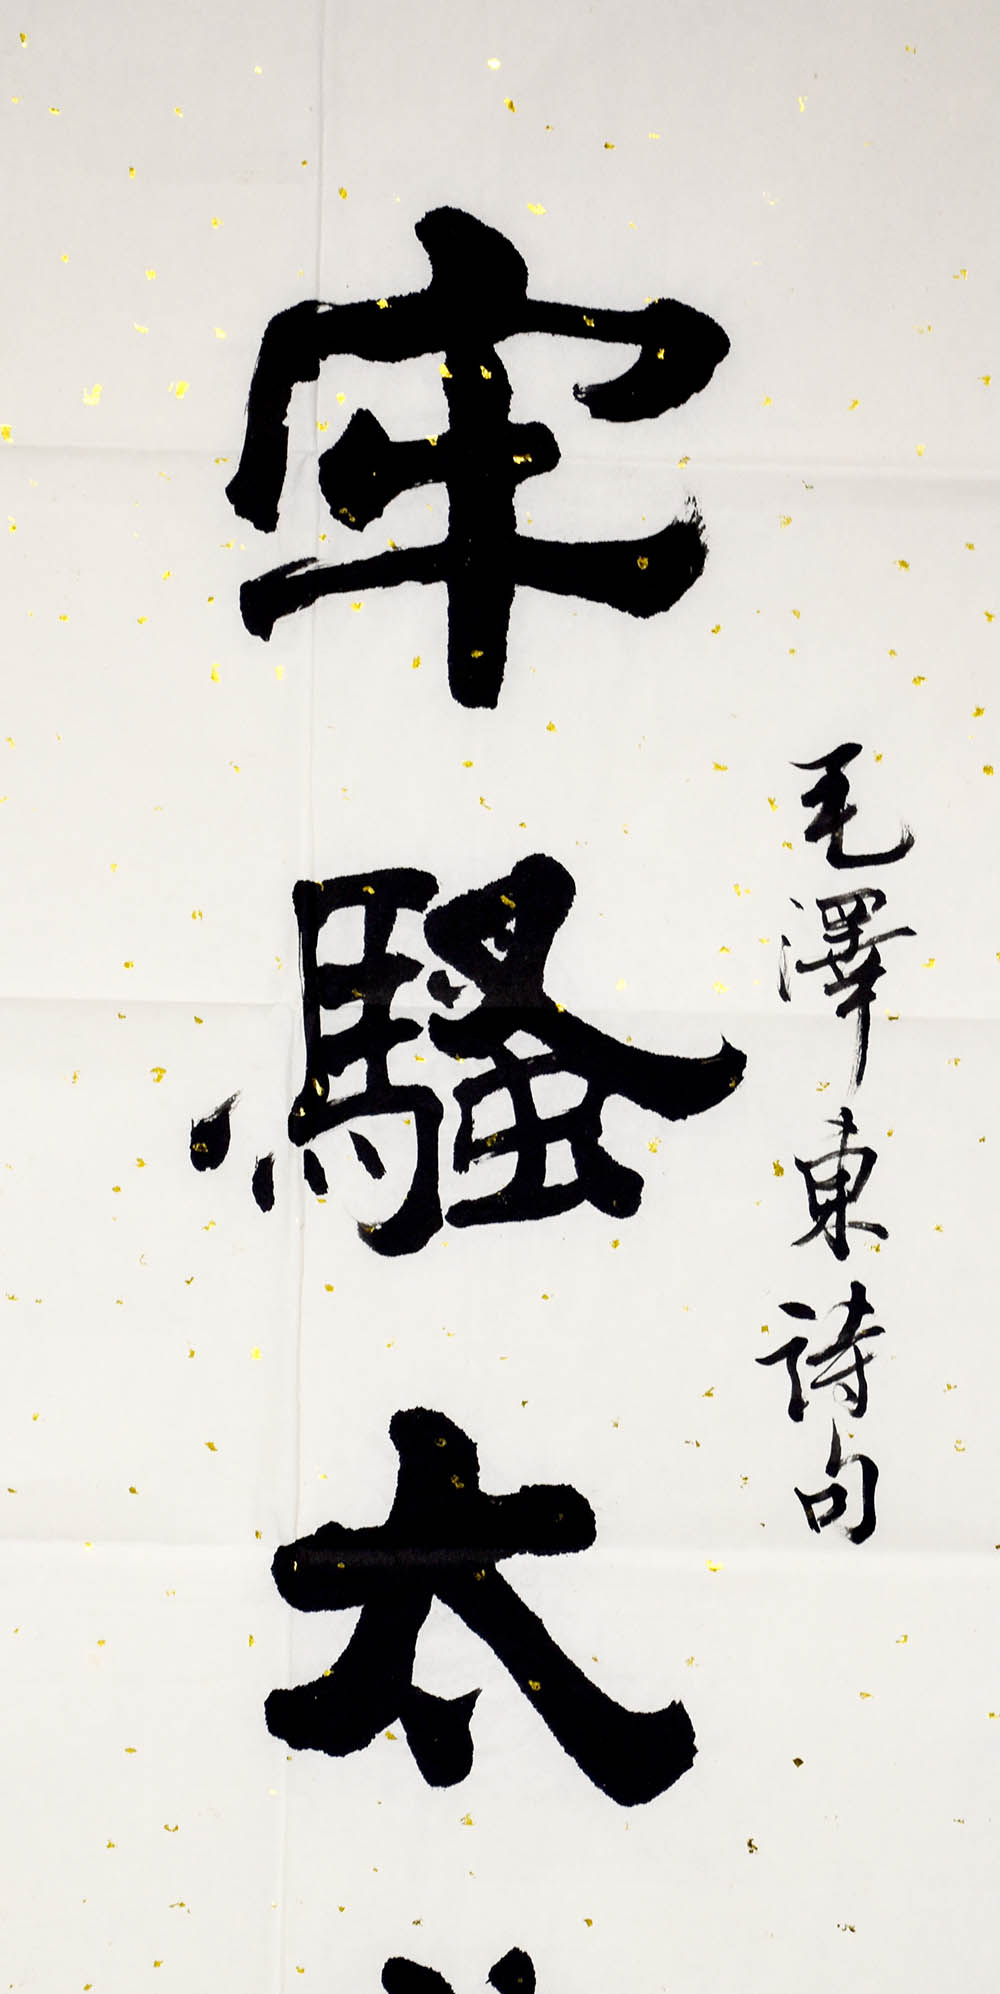 毛澤東詩句
牢騷太